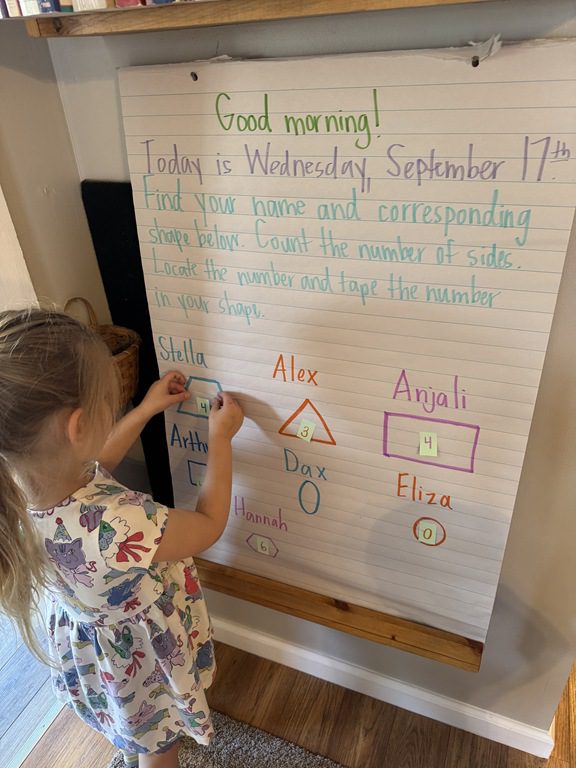 Good morning!
Today is Wednesday, September 17th.
Find your name and corresponding
shape below. Count the number of sides.
Locate the number and tape the number
in your shape.
Stella
4
Alex
3
Anjali
4
Dax
Eliza
0
Hannah
6